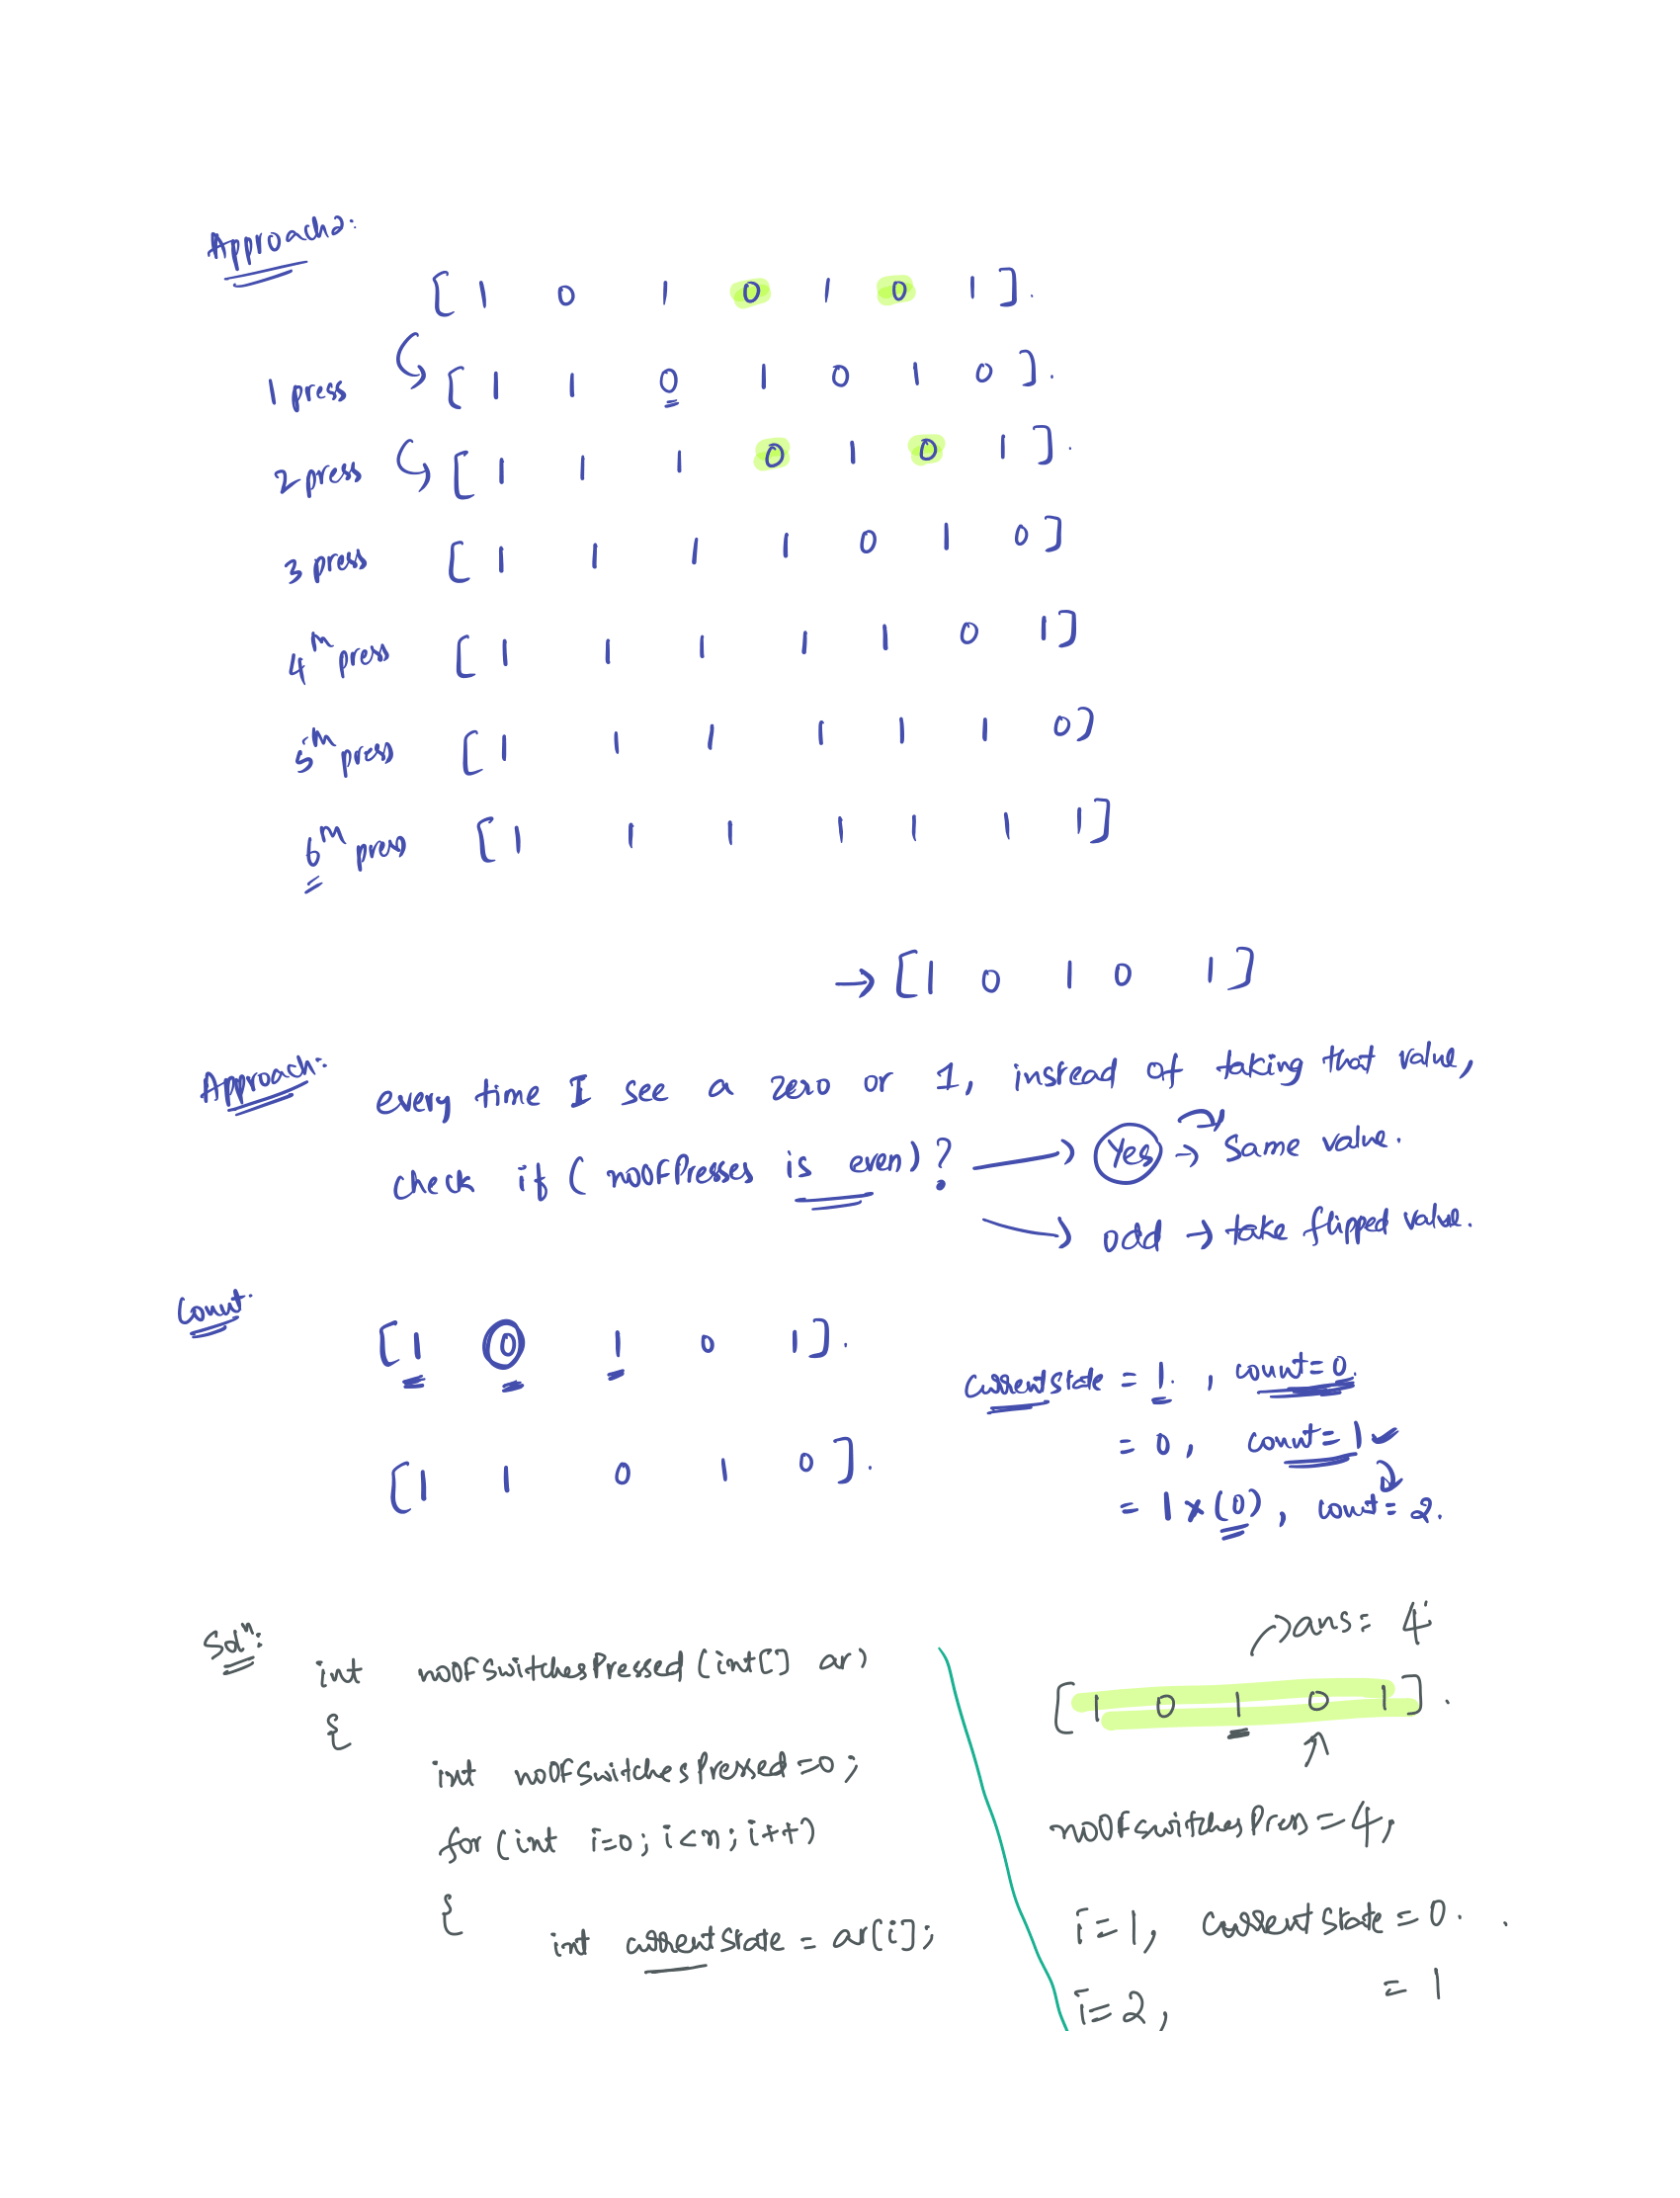 Approach2:
[ 1 0 1 0 1 0 1 ].
1 press [ 1 1 0 1 0 1 0 ].
2 press [ 1 1 1 0 1 0 1 ].
3 press [ 1 1 1 1 0 1 0 ]
4th press [ 1 1 1 1 1 0 1 ]
5th press [ 1 1 1 1 1 1 0 ]
6th press [ 1 1 1 1 1 1 1 ]
→ [ 1 0 1 0 1 ]
Approach: every time I see a zero or 1, instead of taking that value,
check if ( noOfPresses is even) ? → Yes → Same value.
→ odd → take flipped value.
Count:
[ 1 0 1 0 1 ].
currentState = 1. , count=0.
[ 1 1 0 1 0 ].
= 0 , count=1 ✓
= 1 × (0) , count=2.
Soln:
int noOfSwitchesPressed (int[] ar)
{
int noOfSwitchesPressed =0 ;
for (int i=0 ; i<n ; i++)
{
int currentState = ar[i];
ans= 4
[ 1 0 1 0 1 ] .
noOfSwitchesPress =4,
i=1, currentState = 0. .
i=2, = 1